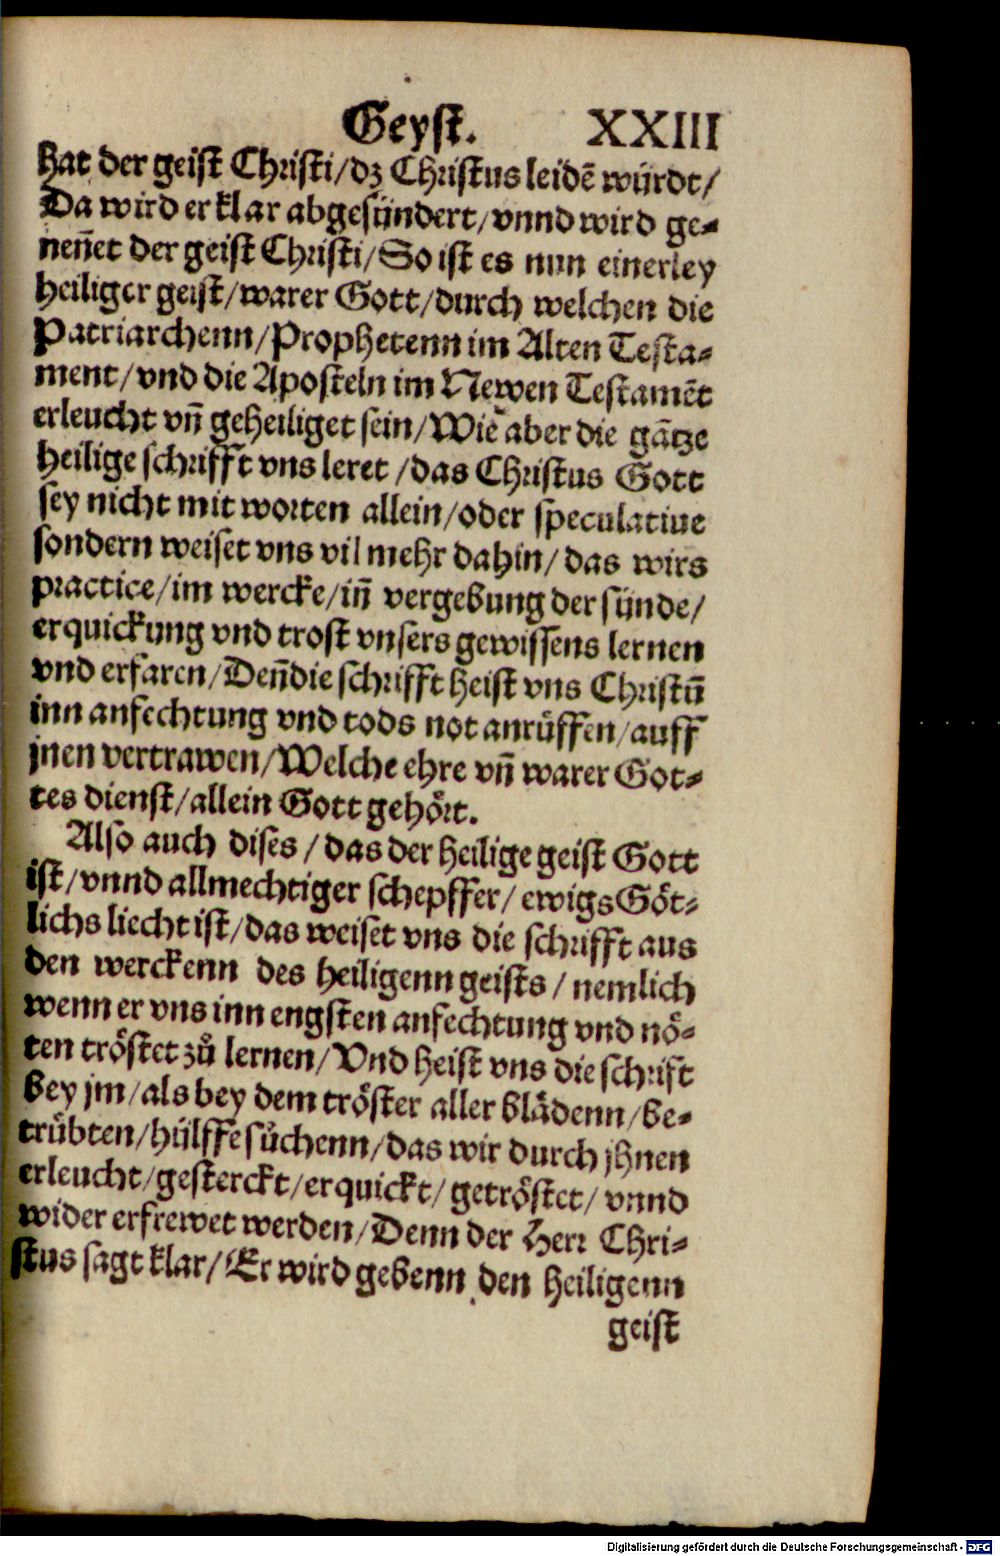 Geyst. XXIII
hat der geist Christi/dz Christus leidē würdt/
Da wird er klar abgesündert/vnnd wird ge⸗
neñet der geist Christi/So ist es nun einerley
heiliger geist/warer Gott/durch welchen die
Patriarchenn/Prophetenn im Alten Testa⸗
ment/vnd die Aposteln im Newen Testamēt
erleucht vñ geheiliget sein/Wie aber die gātze
heilige schrifft vns leret/das Christus Gott
sey nicht mit worten allein/oder speculatiue
sondern weiset vns vil mehr dahin/das wirs
practice/im wercke/iñ vergebung der sünde/
erquickung vnd trost vnsers gewissens lernen
vnd erfaren/Deñ die schrifft heist vns Christū
inn anfechtung vnd tods not anrůffen/auff
jnen vertrawen/Welche ehre vñ warer Got⸗
tes dienst/allein Gott gehört.
Also auch dises/das der heilige geist Gott
ist/vnnd allmechtiger schepffer/ewigs Göt⸗
lichs liecht ist/das weiset vns die schrifft aus
den werckenn des heiligenn geists/nemlich
wenn er vns inn engsten anfechtung vnd nö⸗
ten tröstet zů lernen/Vnd heist vns die schrift
bey jm/als bey dem tröster aller blädenn/be⸗
trübten/hülffe sůchenn/das wir durch jhnen
erleucht/gesterckt/erquickt/getröstet/vnnd
wider erfrewet werden/Denn der Herr Chri⸗
stus sagt klar/Er wird gebenn den heiligenn
geist
Digitalisierung gefördert durch die Deutsche Forschungsgemeinschaft - DFG